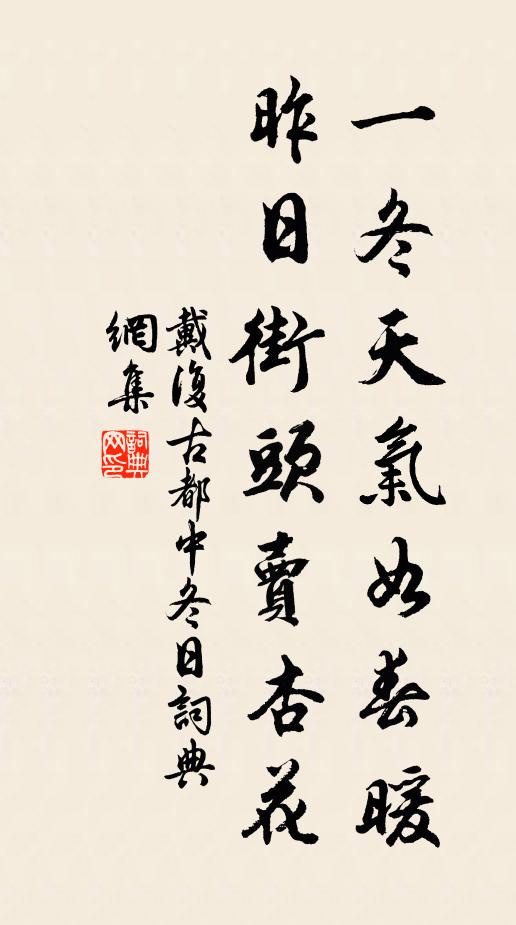 一冬天氣如春暖
昨日街頭賣杏花
戴復古都中冬日詞典
網集
詞典网印